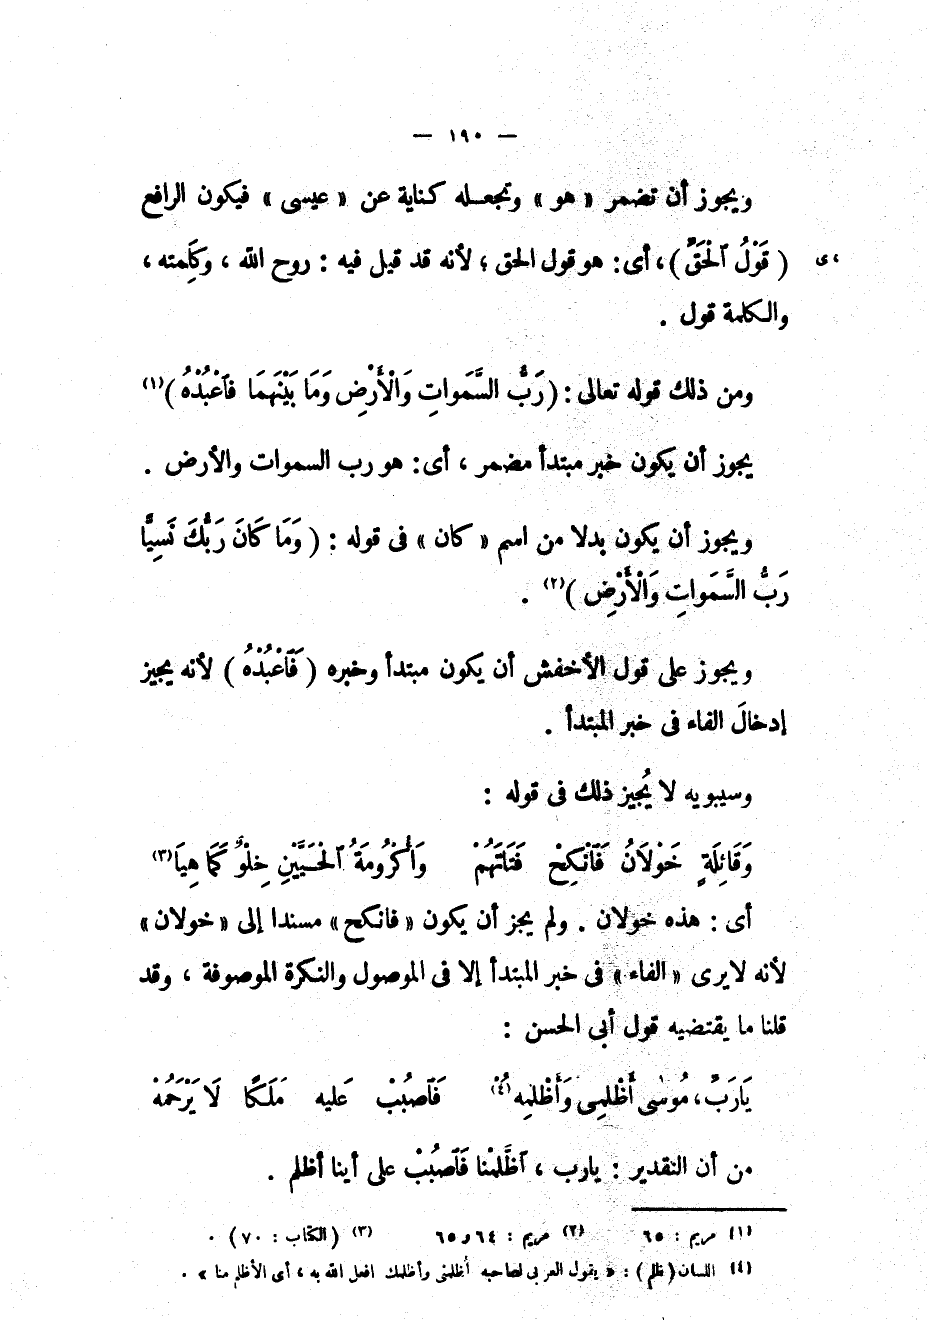 — ١٩٠ —
ويجوز أن تضمر « هو » وتجعله كناية عن « عيسى » فيكون الرافع
( قَوْلُ ٱلْحَقِّ ) ، أى : هو قول الحق ؛ لأنه قد قيل فيه : روح الله ، وكَلِمته ،
والكلمة قول .
ومن ذلك قوله تعالى : ( رَبُّ السَّمَواتِ وَالْأَرْضِ وَمَا بَيْنَهمَا فَاعْبُدْهُ )(١)
يجوز أن يكون خبر مبتدأ مضمر ، أى : هو رب السموات والأرض .
ويجوز أن يكون بدلا من اسم « كان » فى قوله : ( وَمَا كَانَ رَبُّكَ نَسِيًّا
رَبُّ السَّمَواتِ وَالْأَرْضِ )(٢) .
ويجوز على قول الأخفش أن يكون مبتدأ وخبره ( فَٱعْبُدْهُ ) لأنه يجيز
إدخالَ الفاء فى خبر المبتدأ .
وسيبويه لا يُجيز ذلك فى قوله :
وَقَائِلَةٍ خَوْلَانُ فَٱنْكِحْ فَتَاتَهُمْ وَأُكْرُومَةُ ٱلْحَيَّيْنِ خِلْوٌ كَمَا هِيَا(٣)
أى : هذه خولان . ولم يجز أن يكون « فانكح » مسندا إلى « خولان »
لأنه لا يرى « الفاء » فى خبر المبتدأ إلا فى الموصول والنكرة الموصوفة ، وقد
قلنا ما يقتضيه قول أبى الحسن :
يَارَبِّ ، مُوسَى أَظْلَمِى وَأَظْلَمُه(٤) فَٱصْبُبْ عَليه مَلَكًا لَا يَرْحَمُهْ
من أن التقدير : يارب ، ٱظَّلَمْنا فَٱصْبُبْ على أينا أظلم .
(١) مريم : ٦٥ (٢) مريم : ٦٤ و ٦٥ (٣) (الكتاب : ٧٠) .
(٤) اللسان (ظلم) : « يقول العربى لصاحبه أظلمى وأظلمك افعل الله به ، أى الأظلم منا » .